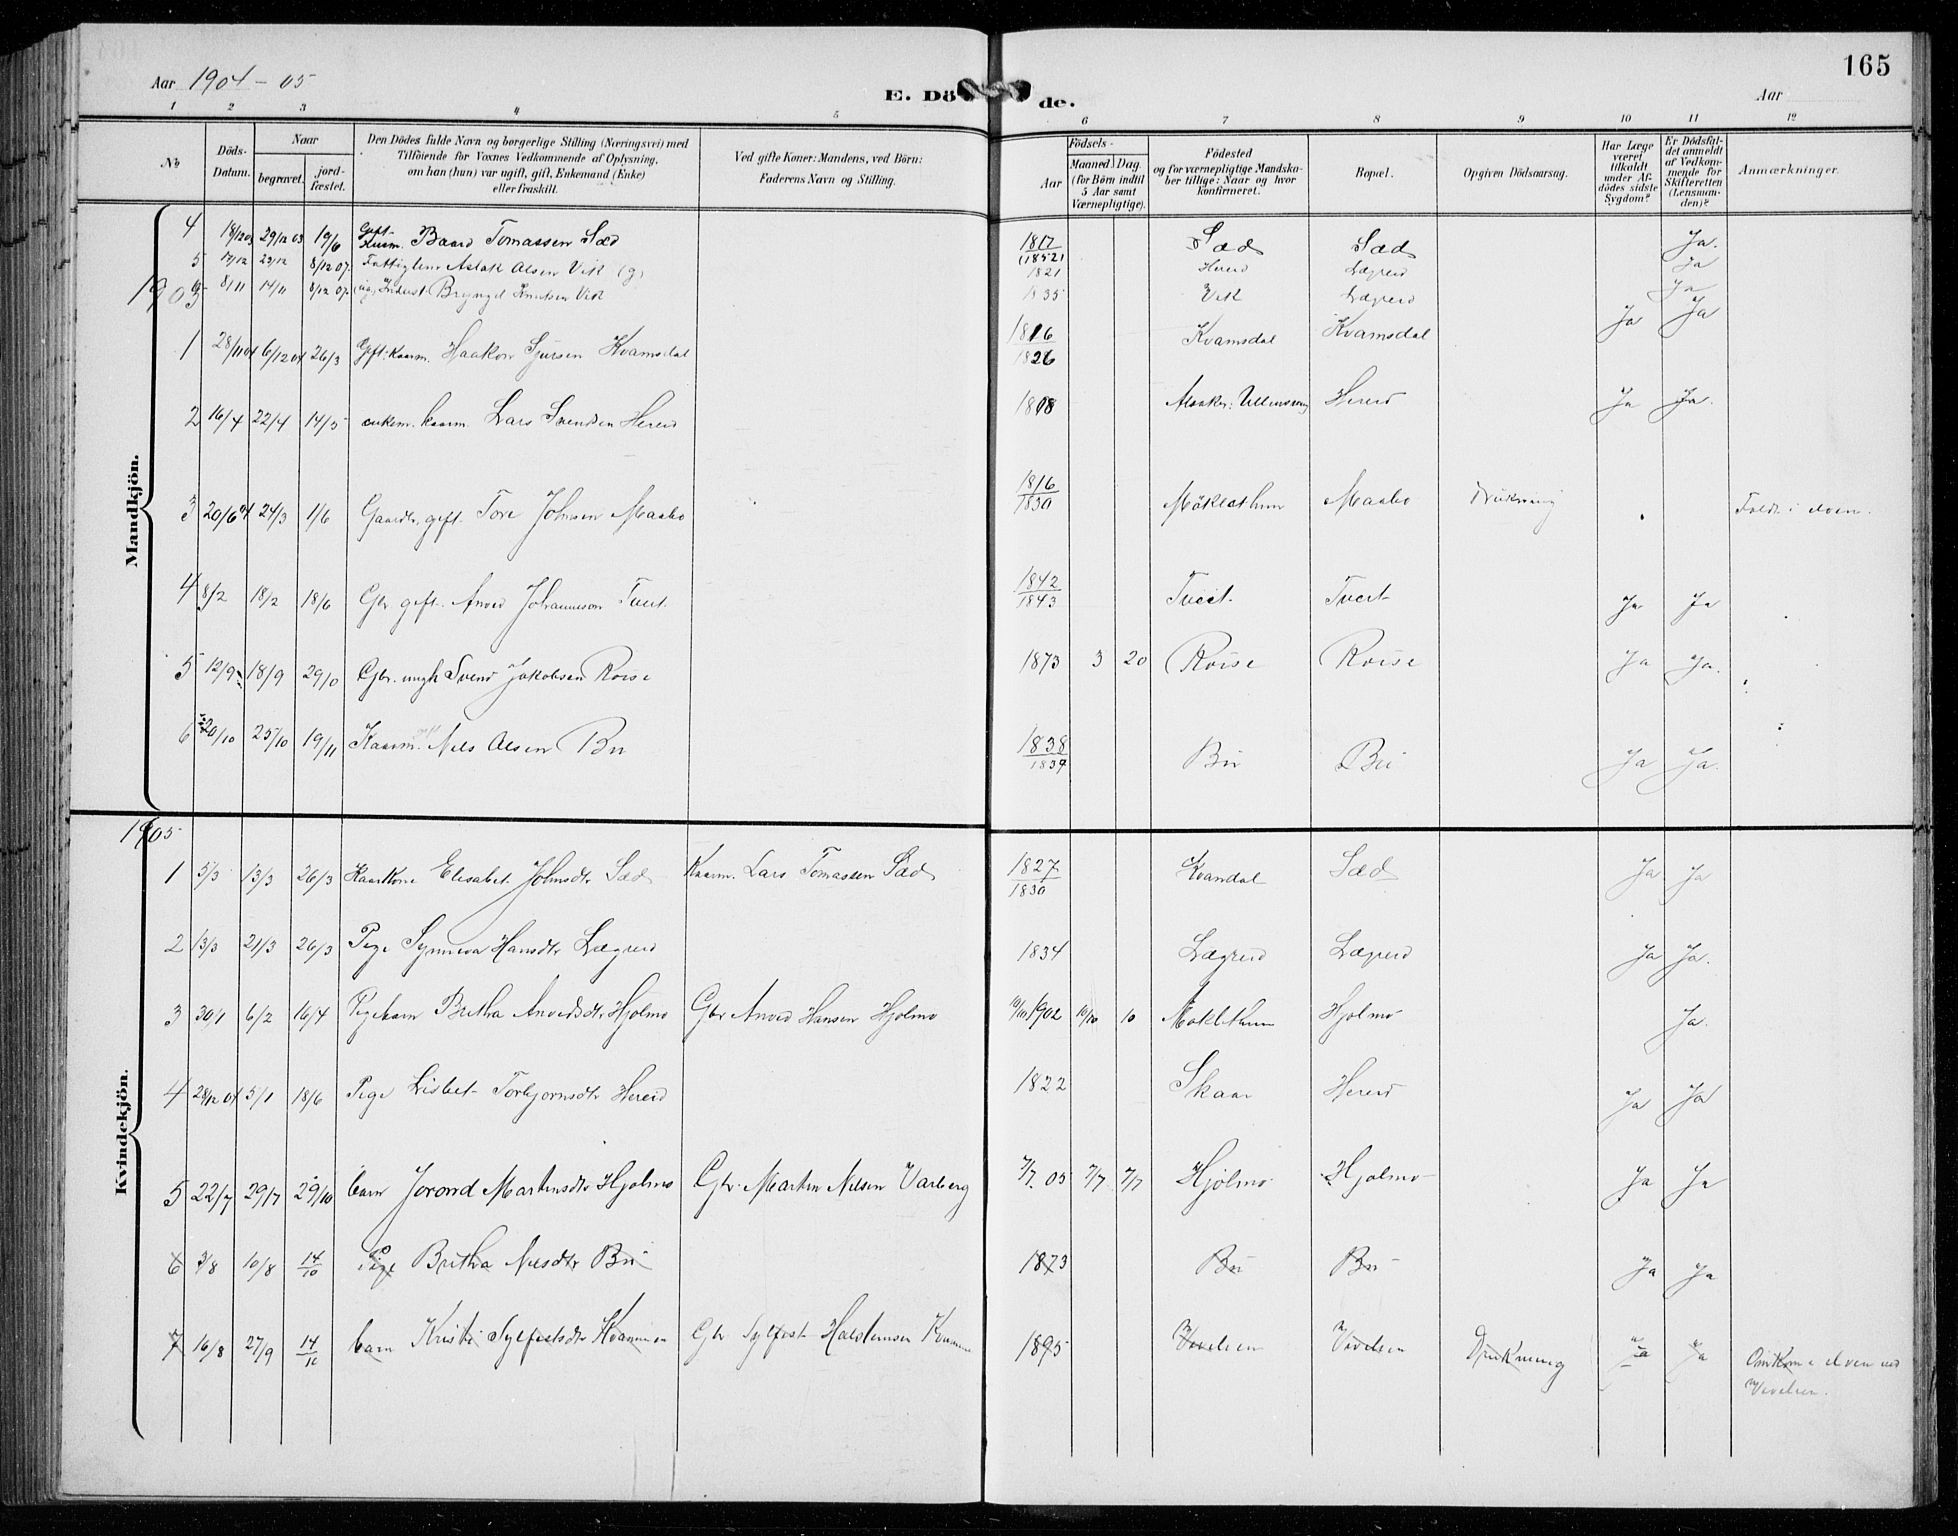 165
Aar 1904-05
E. Dö de.
Aar
1 2 3 4 5 6 7 8 9 10 11 12
No
Döds-Datum.
Naar
begravet.
jord-fæstet.
Den Dödes fulde Navn og borgerlige Stilling (Næringsvei) med
Tilföiende for Voxnes Vedkommende af Oplysning,
om han (hun) var ugift, gift, Enkemand (Enke)
eller fraskilt.
Ved gifte Koner: Mandens, ved Börn:
Faderens Navn og Stilling.
Födsels-
Aar
Maaned Dag
(for Börn indtil
5 Aar samt
Værnepligtige).
Födested
og for værnepligtige Mandsko-
ber tillige: Naar og hvor
konfirmeret.
Bopæl.
Opgiven Dödsaarsag.
Har Læge
været
tilkaldt
under Af-
dödes sidste
Sygdom?
Er Dödsfal-
det anmeldt
af Vedkom-
mende for
Skifteretten
(Lensman-
den)?
Anmærkninger.
Mandkjön.
4 18/12 03 29/12 03 19/6 Gift Kaarm. Baard Tomassen Sæd 1817 (1852) Sæd Sæd Ja.
5 29/12 8/12 07. Aslak Olsen Vik (g) 1821 Hereid Lægreid Ja
8/11 14/11 8/12 07. Inderst Bryngel Knutsen Vik 1835 Vik Lægreid Ja
1905
1 28/11 04 6/12 04 26/3 Gift. kaarm. Haakon Sjursen Kvamsdal 1816 1826 Kvamsdal Kvamsdal Ja Ja
2 16/4 22/4 14/5 enkem. kaarm. Lars Svendsen Hereid 1818 Ullensvang Hereid Ja Ja.
3 20/6 04 24/3 1/6 Gaardbr. gift. Tore Johnsen Maabø 1816 1830 Maabø Faldt i elven.
4 8/2 18/2 18/6 Gbr gift. Anved Johannesson Tveit 1842 1843 Tveit. Tveit Ja Ja
5 12/9 18/9 29/0 Gbr. ungk Svend Jakobsen Røise 1873 3 20 Røise Røise Ja Ja.
6 20/10 25/10 19/11 Kaarm. Nils Olsen Bu 1838 1839 Bu Bu Ja Ja.
Kvindekjön.
1905
1 5/3 13/3 26/3 Kaarkone Elisabet Johnsdtr Sæd Kaarm. Lars Tomassen Sæd 1827 1830 Kvandal Sæd Ja Ja
2 13/3 21/3 26/3 Pige Synneva Hansdtr Lægreid 1834 Lægreid Lægreid Ja Ja.
3 30/1 6/2 16/4 Pigebarn Britha Anvedsdtr Hjølmo Gbr Anved Hansen Hjølmo 10/10 1902 10/10 10 Hjølmo Ja.
4 28/12 04 5/1 18/6 Pige Lisbet Torbjørnsdtr Hereid 1822 Skaar Hereid Ja Ja
5 22/7 29/7 29/10 barn Jorond Martinsdtr Hjølmo Gbr. Martin Nilsen Varberg 7/7 05 7/7 7/7 Hjølmo Hjølmo Ja Ja
6 3/8 10/8 14/10 Pige Britha Nilsdtr Bu 1873 Bu Bu Ja Ja
7 16/8 27/9 14/10 barn Kristi Sylfestsdtr Kvammen Gbr Sylfest Halstensen 1895 Drukning Ja Ja Omkom i elven ved